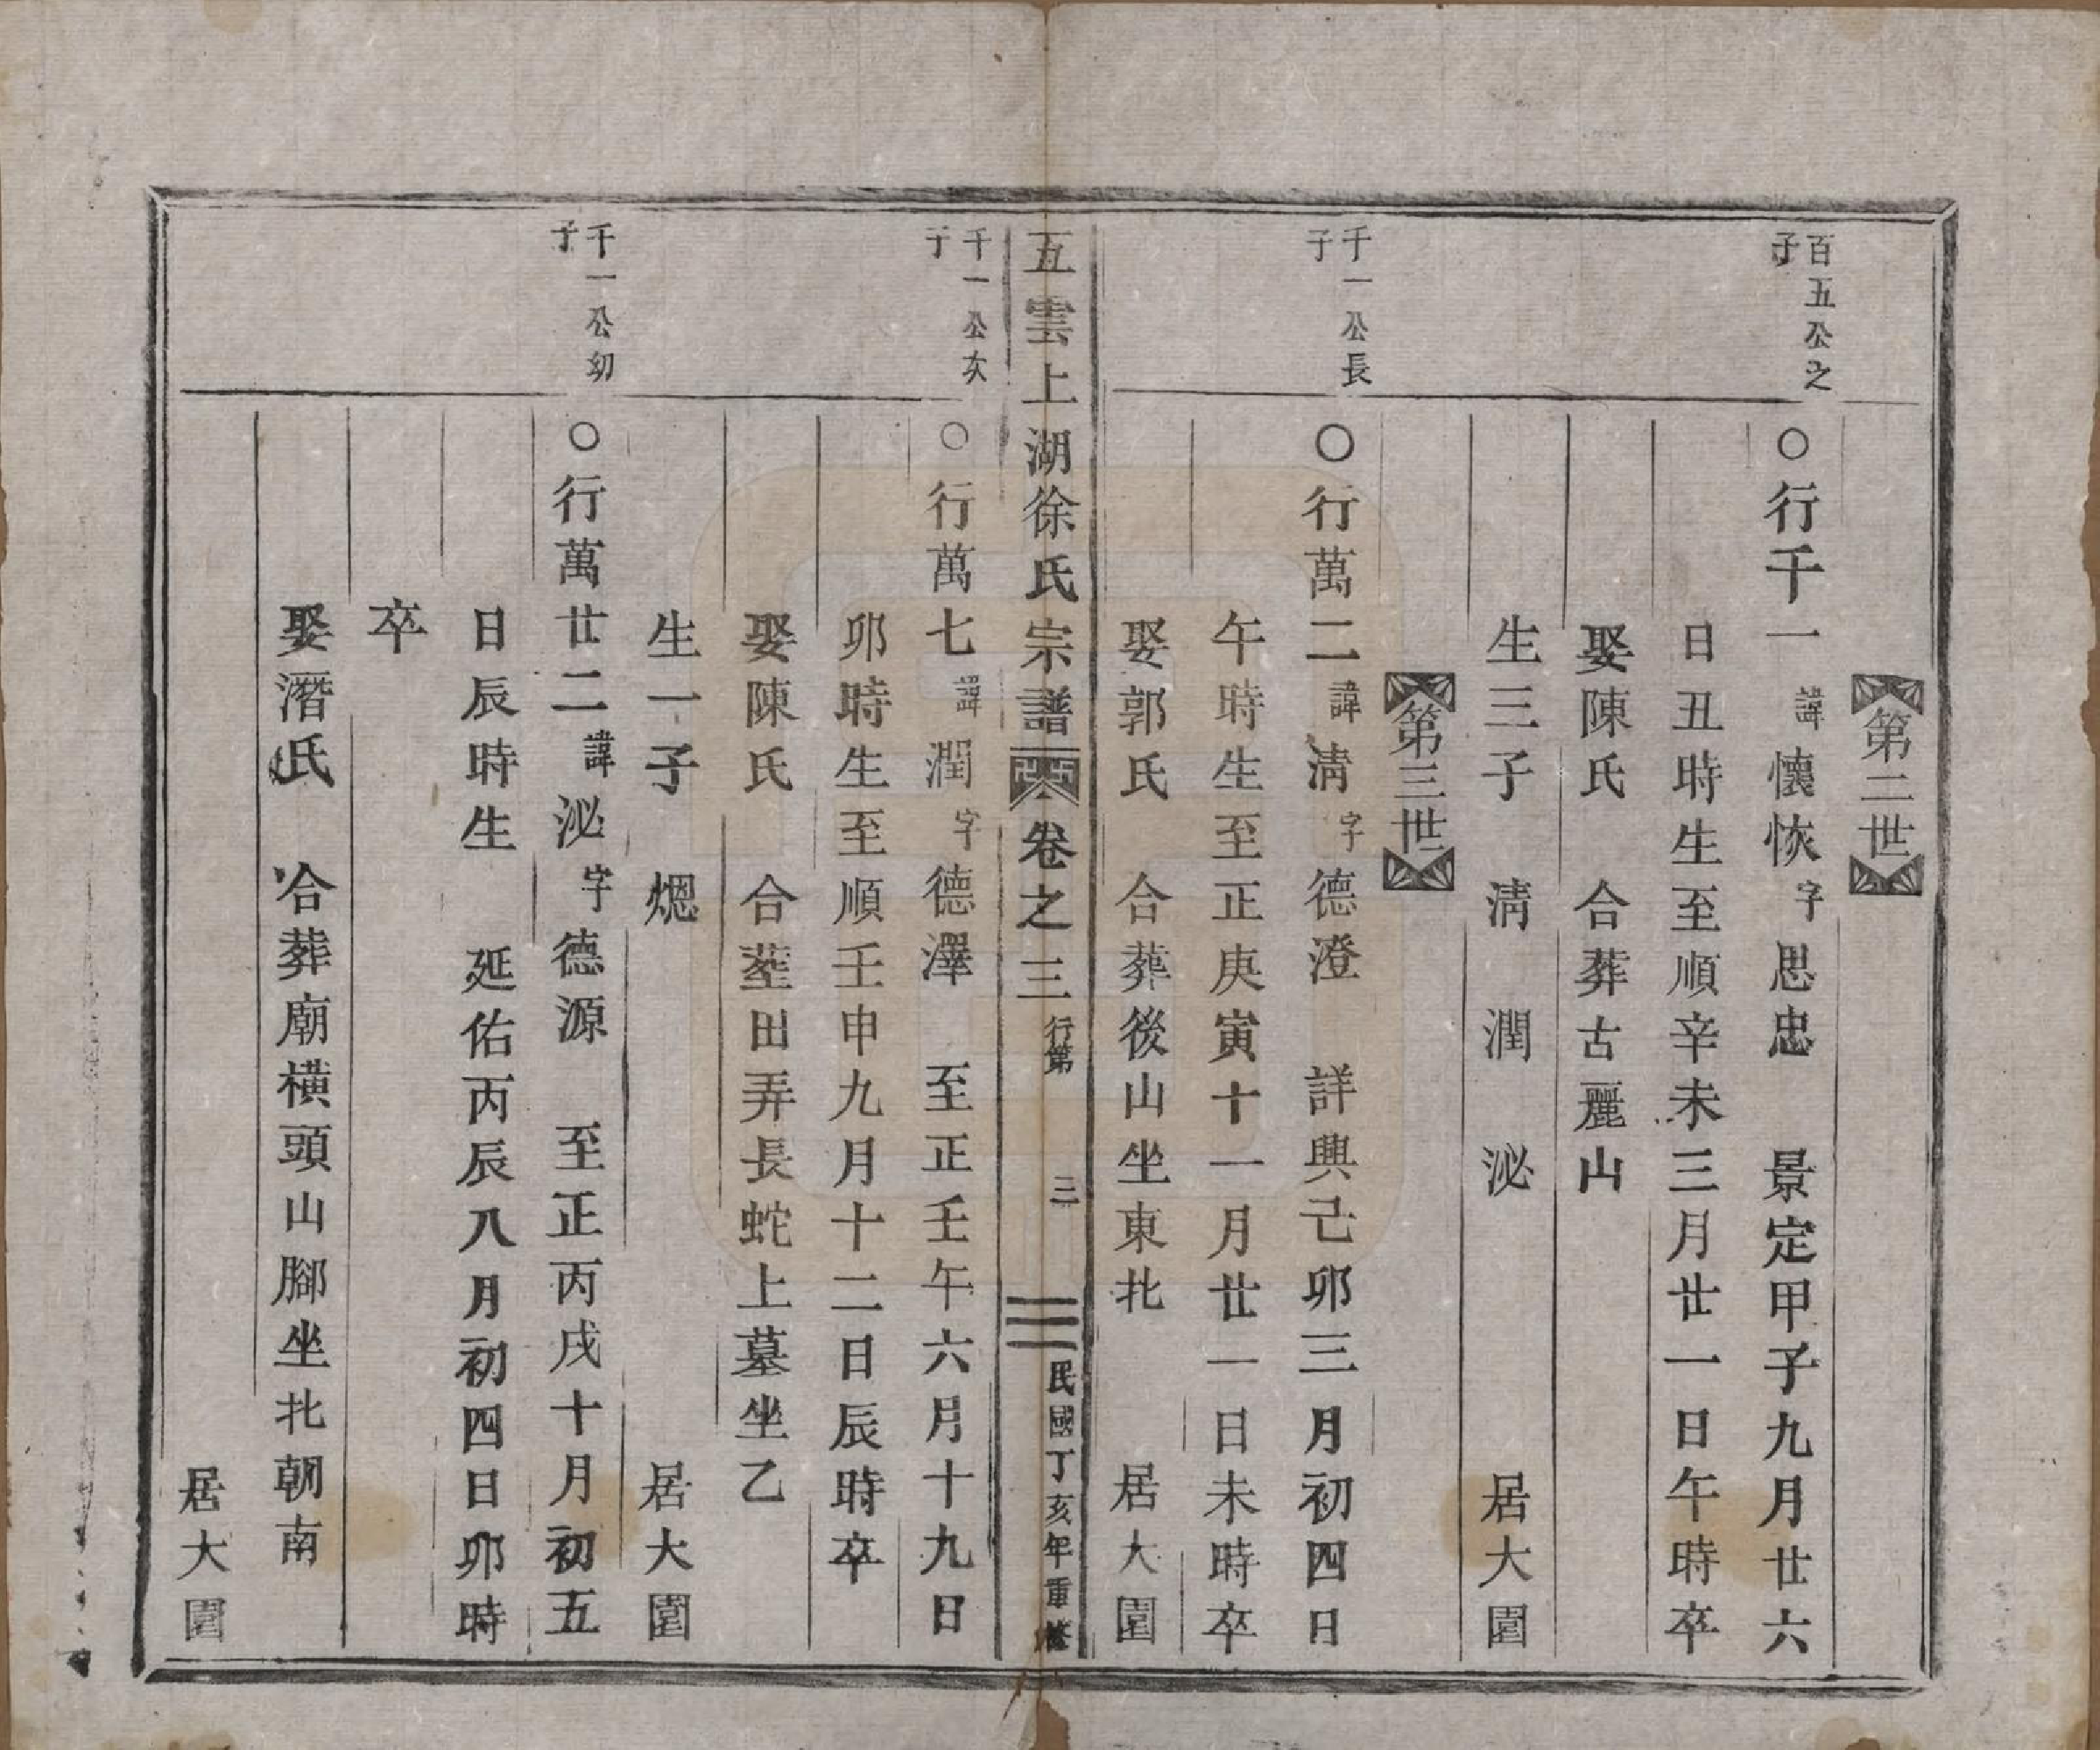 第二世
百五公之子
○行千一諱懷恢字思忠 景定甲子九月廿六
日丑時生至順辛未三月廿一日午時卒
娶陳氏 合葬古麗山
生三子 淸 潤 泌 居大園
第三世
千一公長子
○行萬二諱淸字德澄 詳興己卯三月初四日
午時生至正庚寅十一月廿一日未時卒
娶郭氏 合葬後山坐東北 居大園
五雲上湖徐氏宗譜 卷之三 行第 三 民國丁亥年重修
千一公次子
○行萬七諱潤字德澤 至正壬午六月十九日
卯時生至順壬申九月十二日辰時卒
娶陳氏 合塟田弄長蛇上墓坐乙
生一子 煾 居大園
千一公幼子
○行萬廿二諱泌字德源 至正丙戌十月初五
日辰時生 延佑丙辰八月初四日卯時
卒
娶潛氏 合葬廟橫頭山腳坐北朝南
居大園